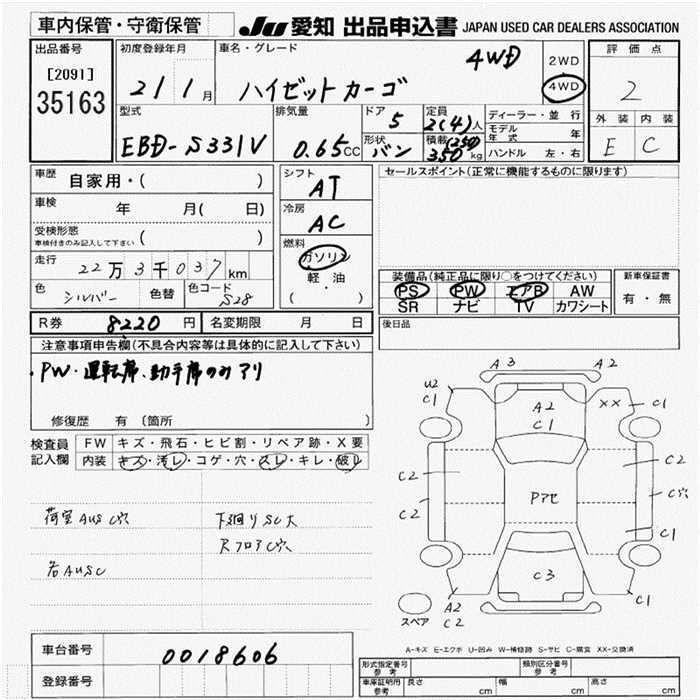 車内保管・守衛保管
JU 愛知 出品申込書 JAPAN USED CAR DEALERS ASSOCIATION
出品番号
[2091]
35163
初度登録年月
21 1月
車名・グレード
ハイゼットカーゴ 4WD
2WD
4WD
評価点
2
外装 内装
E C
型式
EBD-S331V
排気量
0.65CC
ドア
5
形状
バン
定員
2(4)人
積載(250)
350kg
ディーラー・並行
モデル年式 年
ハンドル 左・右
車歴
自家用・( )
車検
年 月( 日)
受検形態
車検付きのみ記入して下さい ( )
走行
22万3千037km
色
シルバー
色替
色コード
S28
シフト
AT
冷房
AC
燃料
ガソリン
・
軽油
( )
セールスポイント(正常に機能するものに限ります)
装備品(純正品に限り○をつけてください)
PS PW エアB AW
SR ナビ TV カワシート
新車保証書
有・無
後日品
R券 8220円
名変期限 月 日
注意事項申告欄(不具合内容等は具体的に記入して下さい)
・PW・運転席、助手席のみアリ
修復歴 有 〔箇所 〕
検査員
記入欄
FW キズ・飛石・ヒビ割・リペア跡・X要
内装 キズ・汚レ・コゲ・穴・スレ・キレ・破レ
荷室AUSC穴
下廻りSC大
RフロアC穴
右AUSC
A3 A2
U2
C1
A2
C1
XX C1
C2
C2
Pアセ
C2
C穴
C1
C3
A2
C2
C1
スペア
A-キズ E-エクボ U-凹み W-補修跡 S-サビ C-腐食 XX-交換済
車台番号 0018606
登録番号
形式指定番号
参考
類別区分番号
参考
車庫証明用
参考
長さ cm 幅 cm 高さ cm